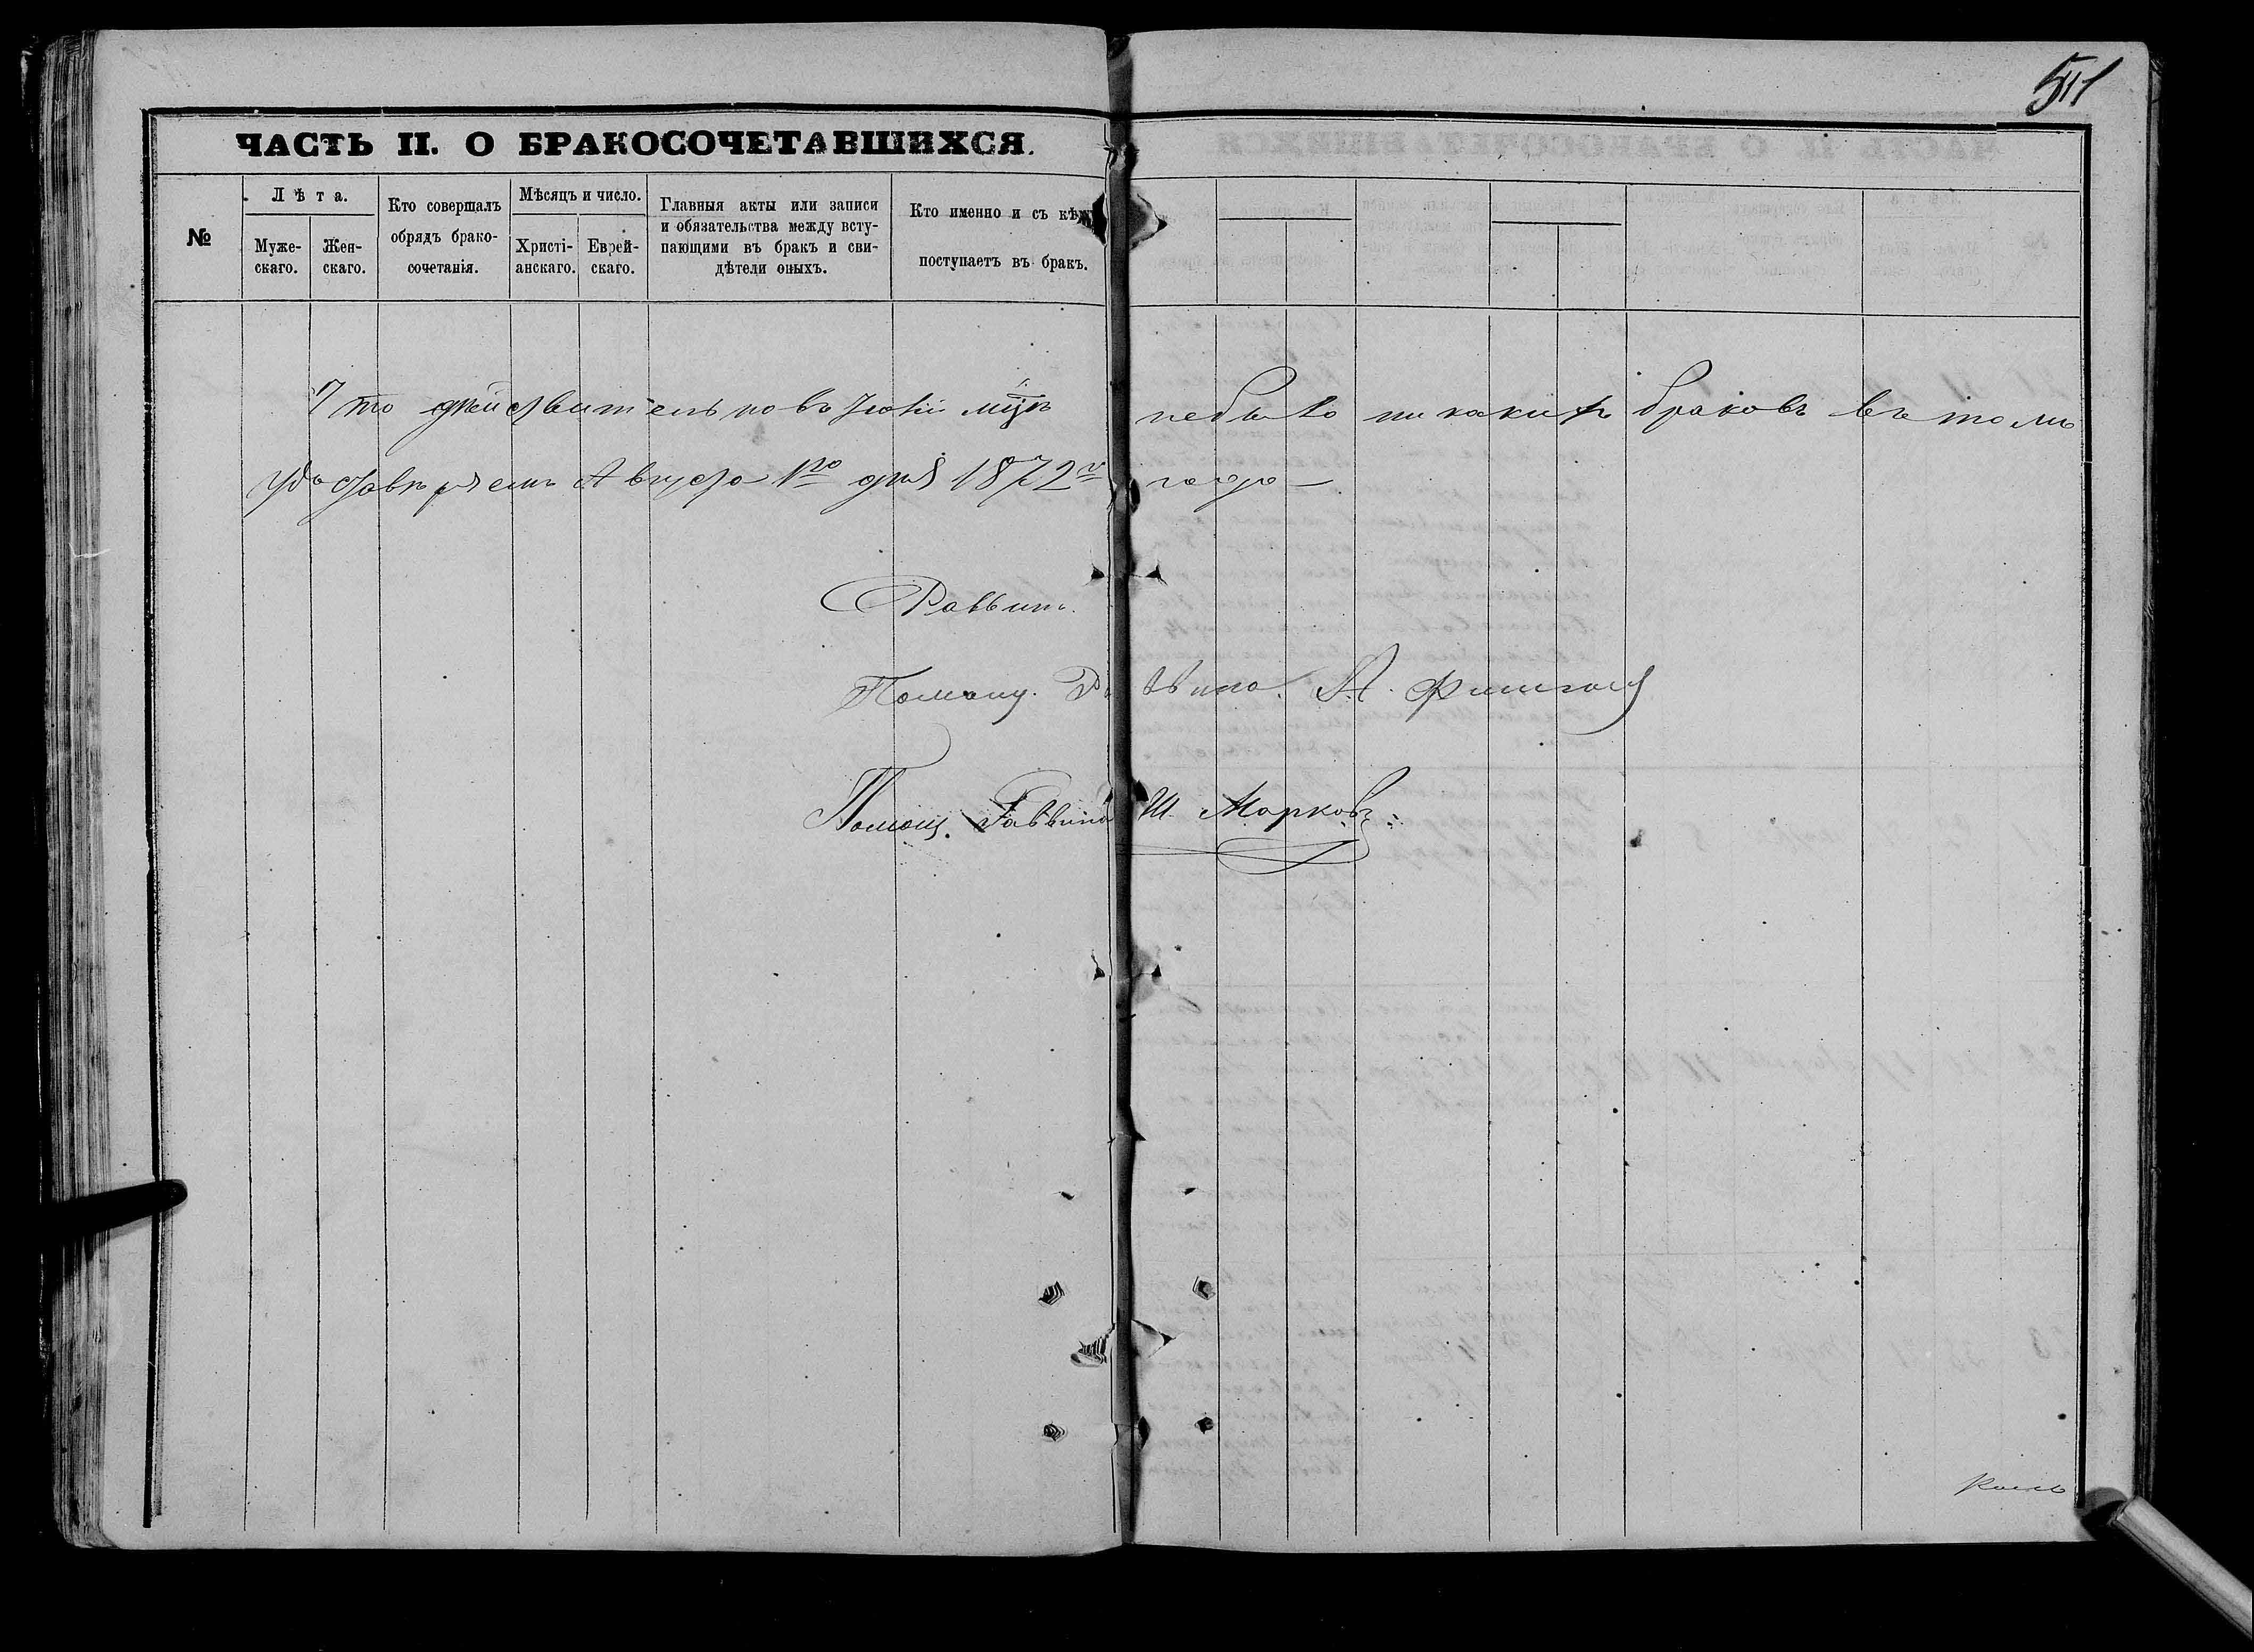 ЧАСТЬ II. О БРАКОСОЧЕТАВШИХСЯ.
№
Лѣта.
Муже-
скаго.
Жен-
скаго.
Кто совершалъ
обрядъ брако-
сочетанія.
Мѣсяцъ и число.
Христі-
анскаго.
Еврей-
скаго.
Главныя акты или записи
и обязательства между всту-
пающими въ бракъ и сви-
дѣтели оныхъ.
Кто именно и съ кѣмъ
поступаетъ въ бракъ.
Что дѣйствительно въ Іюлѣ м-цѣ небыло никакихъ браковъ въ томъ
удостовѣряемъ Августа 1го дня 1872 г. года —
Раввинъ.
Помощ. Раввина. А.
Помощ. Раввина Ш. Марковъ